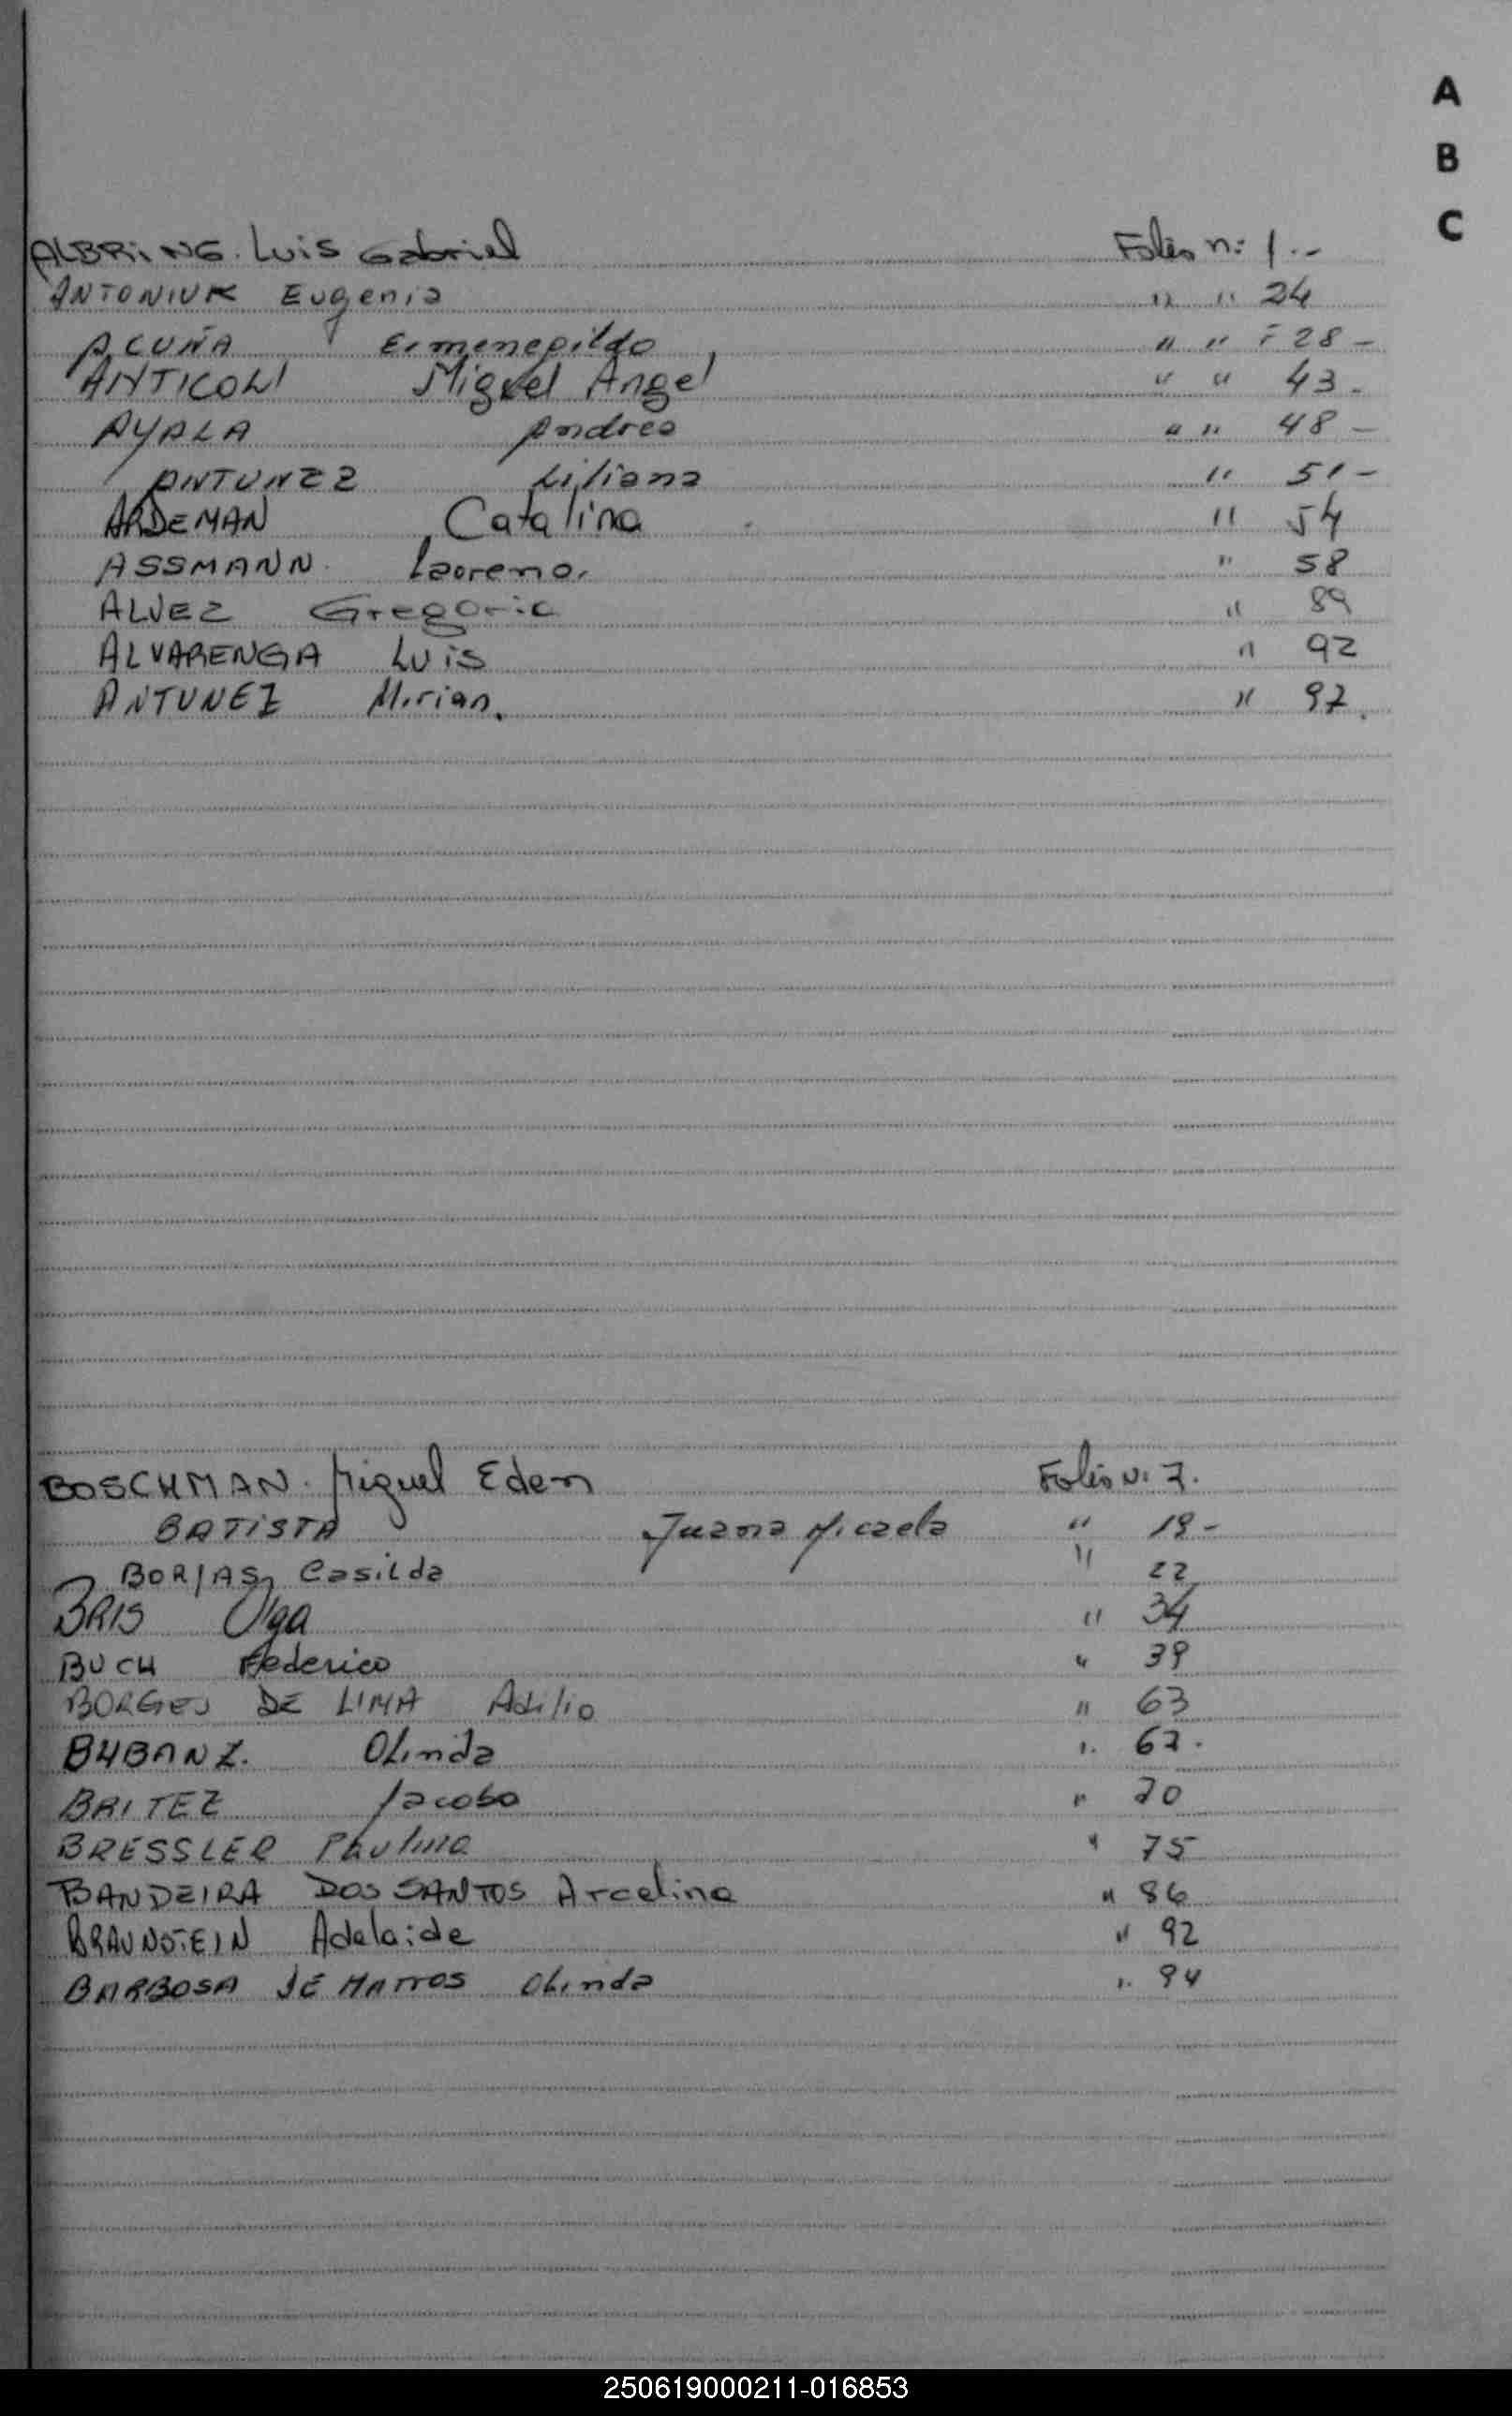 A
B
C
ALBRING. Luis Gabriel Folio n: 1.-
ANTONIUK Eugenia " " 24
ACUÑA Ermenegildo " " 28 -
ANTICOLI Miguel Angel " " 43.
AYALA Andrea " " 48 -
ANTUNEZ Liliana " 51 -
ARDEMAN Catalina " 54
ASSMANN Laoreno. " 58
ALVEZ Gregorio " 89
ALVARENGA LUIS " 92
ANTUNEZ Mirian. " 97.
BOSCHMAN. Miguel Eden Folio N: 7.
BATISTA Juana Micaela " 19 -
BORJAS, Casilda " 22
BRIS Olga " 34
BUCH Federico " 39
BORGES DE LIMA Adilio " 63
BUBANZ. Olinda " 67.
BRITEZ Jacobo " 70
BRESSLER Paulina " 75
BANDEIRA DOS SANTOS Arcelina " 86
BRAUNSTEIN Adelaide " 92
BARBOSA DE MATTOS Olinda " 94
250619000211-016853